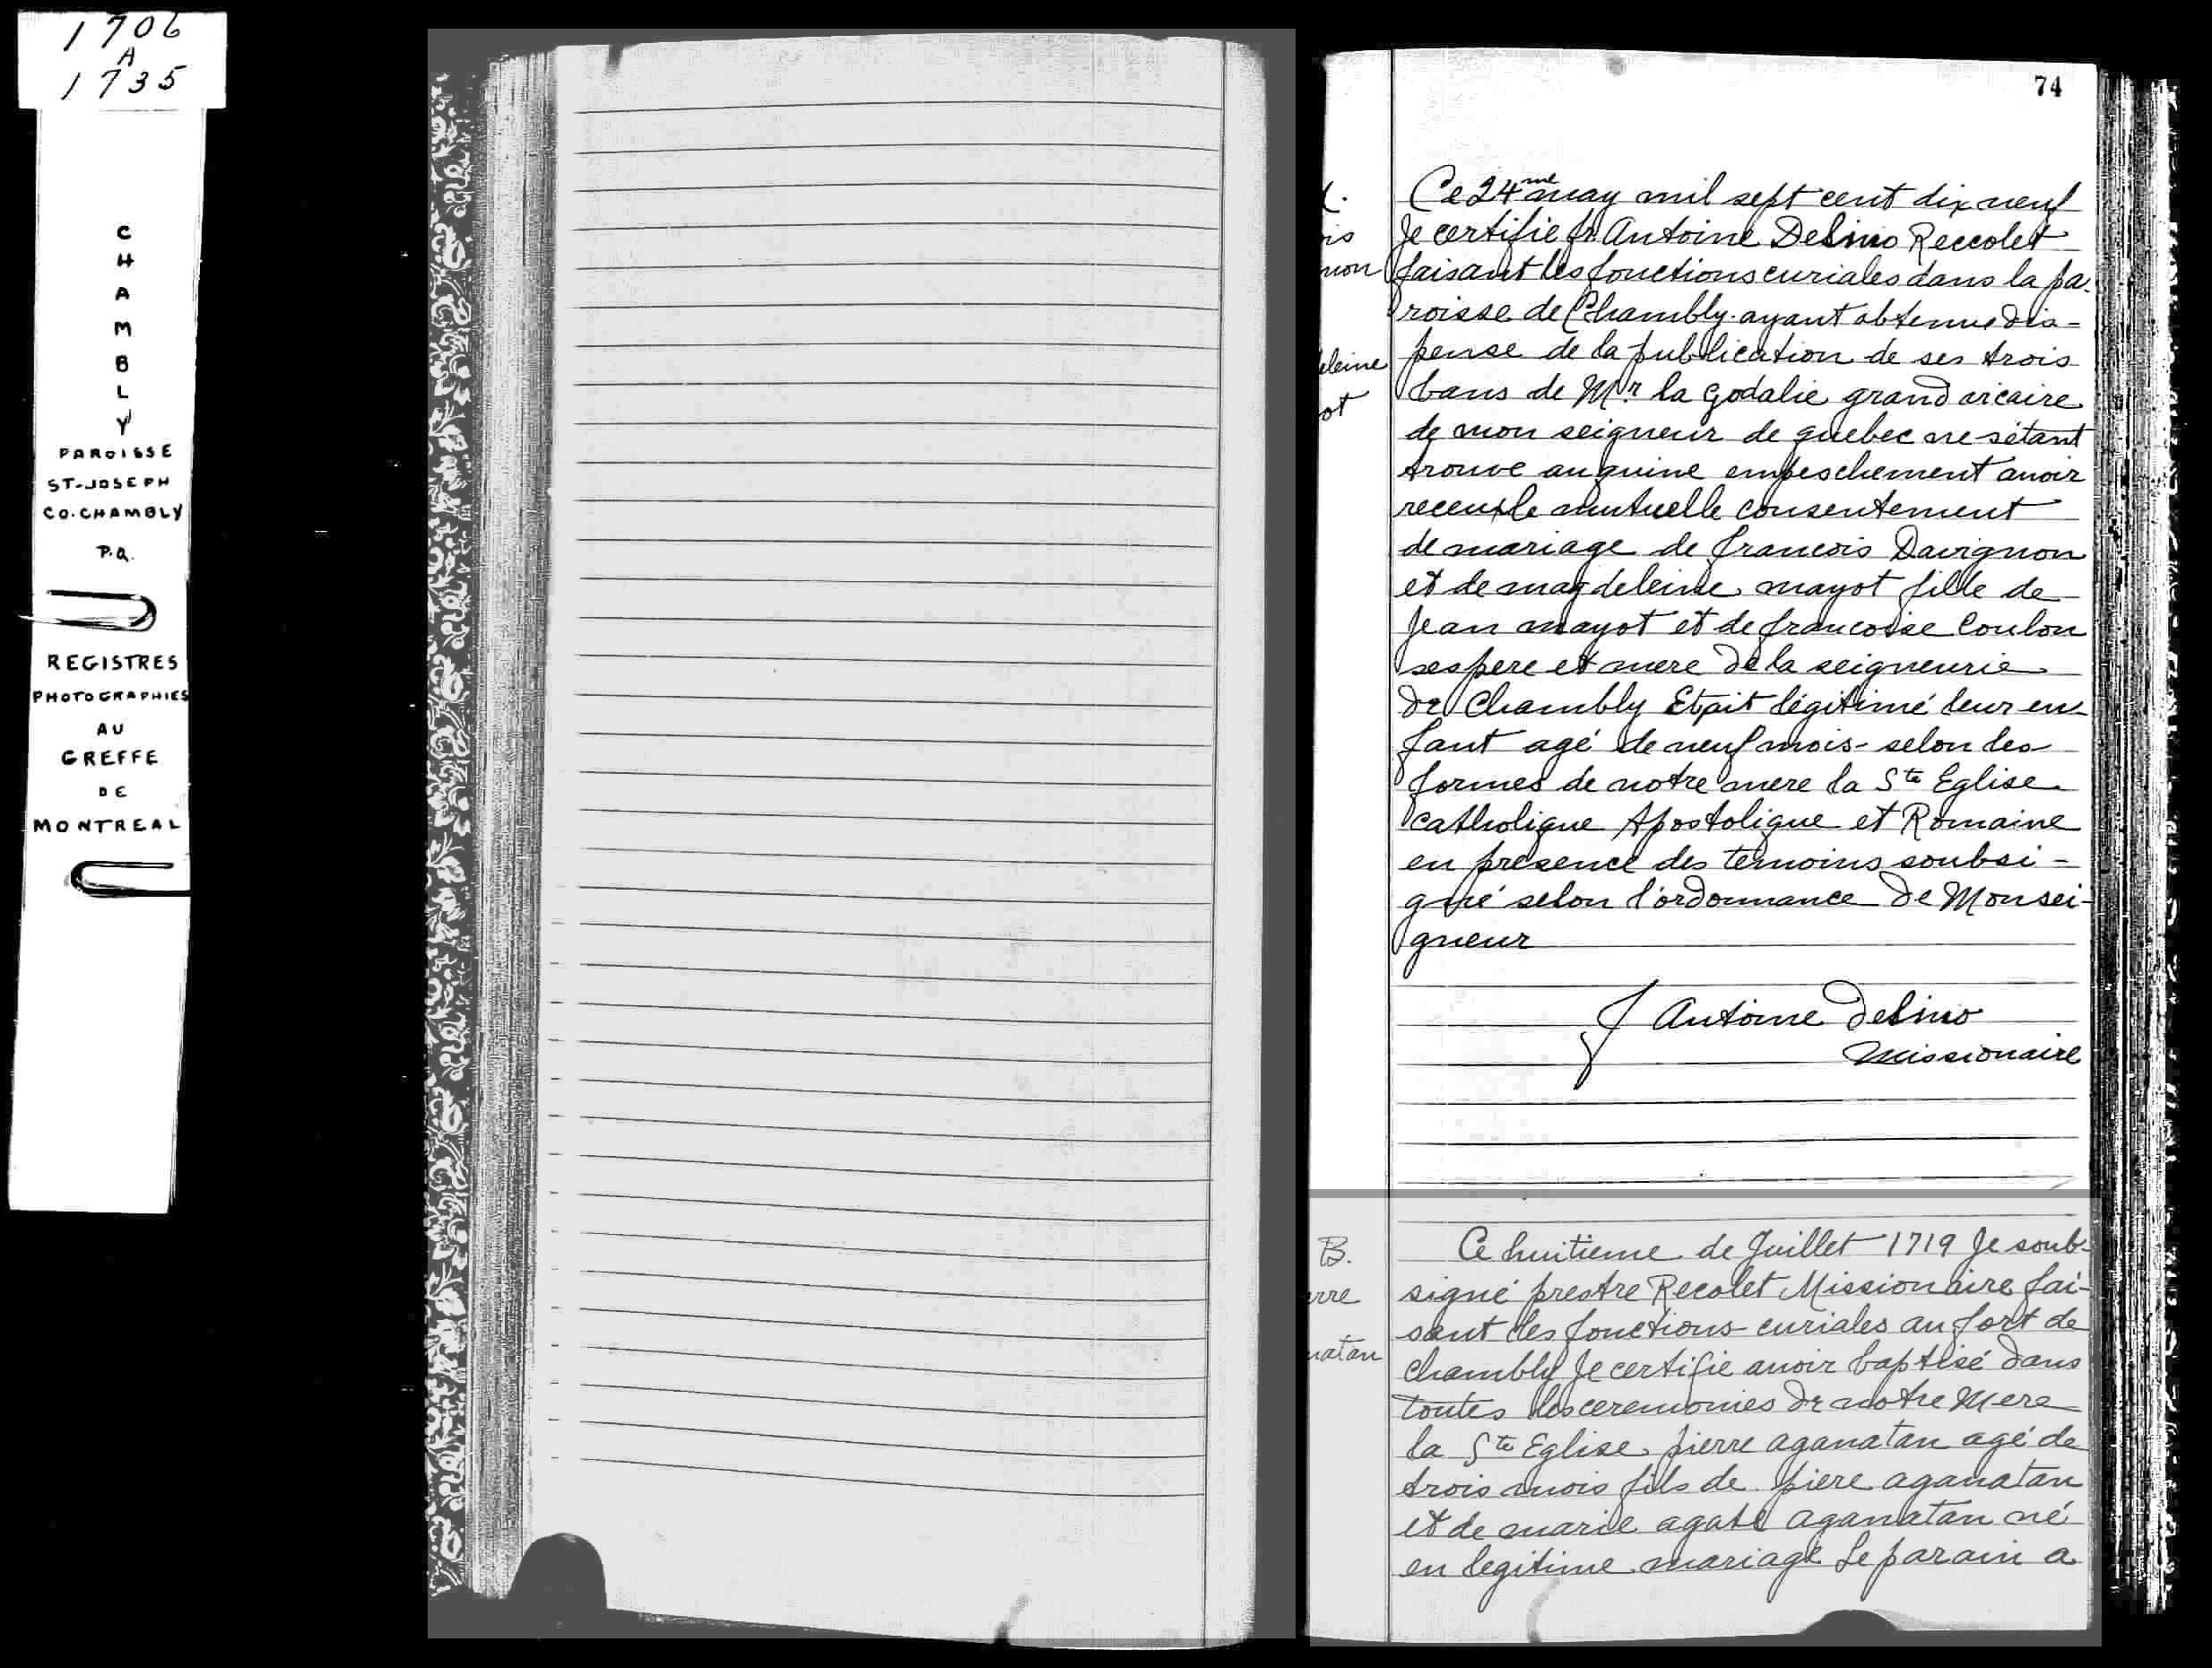 1706
A
1735
C
H
A
M
B
L
Y
PAROISSE
ST-JOSEPH
CO. CHAMBLY
P.Q.
REGISTRES
PHOTOGRAPHIES
AU
GREFFE
DE
MONTREAL
74
Ce 24me may mil sept cent dix neuf
Je certifie fr Antoine Delino Reccolet
faisant les fonctions curiales dans la pa-
roisse de Chambly ayant obtenue dis-
pense de la publication de ses trois
bans de Mr. la Godalie grand vicaire
de mon seigneur de quebec ne sétant
trouve auquine empeschement avoir
receu le mutuelle consentement
de mariage de francois Davignon
et de magdeleine mayot fille de
Jean mayot et de francoise Coulon
ses pere et mere de la seigneurie
de Chambly Et ait légitimé leur en
fant agé de neuf mois - selon les
formes de notre mere la Ste Eglise
catholique Apostolique et Romaine
en presence des temoins soubsi-
gné selon l'ordonnance de Monsei-
gneur
is
non
eleine
ot
f Antoine Delino
Missionaire
B.
rre
natan
Ce huitieme de Juillet 1719 Je soub-
signé prestre Recolet Missionaire fai-
sant les fonctions curiales au fort de
Chambly Je certifie avoir baptisé dans
toutes les ceremonies de notre Mere
la Ste Eglise pierre aganatan agé de
trois mois fils de piere aganatan
et de marie agate aganatan né
en legitime mariage Le parain a